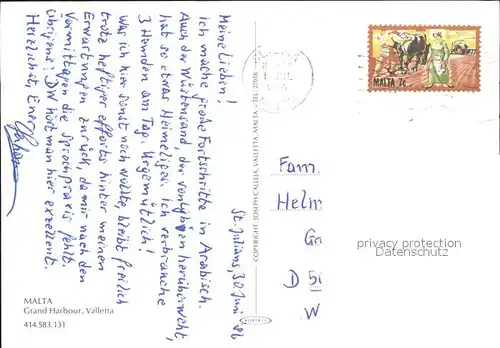 MALTA 7c
St. Julians, 30. Juni 86
Meine Lieben!
Ich mache große Fortschritte in Arabisch.
Auch der Wüstensand, der von Libyen herüberweht,
hat so etwas Heimeliges. Ich verbrauche
3 Hemden am Tag. Urgemütlich!
Was ich hier sonst noch wollte, bleibt freilich
trotz heftiger efforts hinter meinen
Erwartungen zurück, da mir nach den
Vormittagen die Sprachpraxis fehlt.
Übrigens: DW hört man hier exzellent.
Herzlichst, Euer
Fam.
Helm
Gr
D 50
W
privacy protection
Datenschutz
COPYRIGHT JOSEPH CALLEJA, VALLETTA, MALTA - TEL.
MALTA
Grand Harbour, Valletta
414.583.131